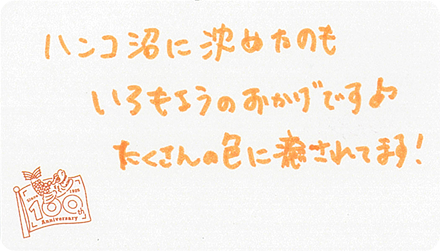 ハンコ沼に沈めたのも
いろもようのおかげですよ
たくさんの色に癒されてます!
100th
Anniversary